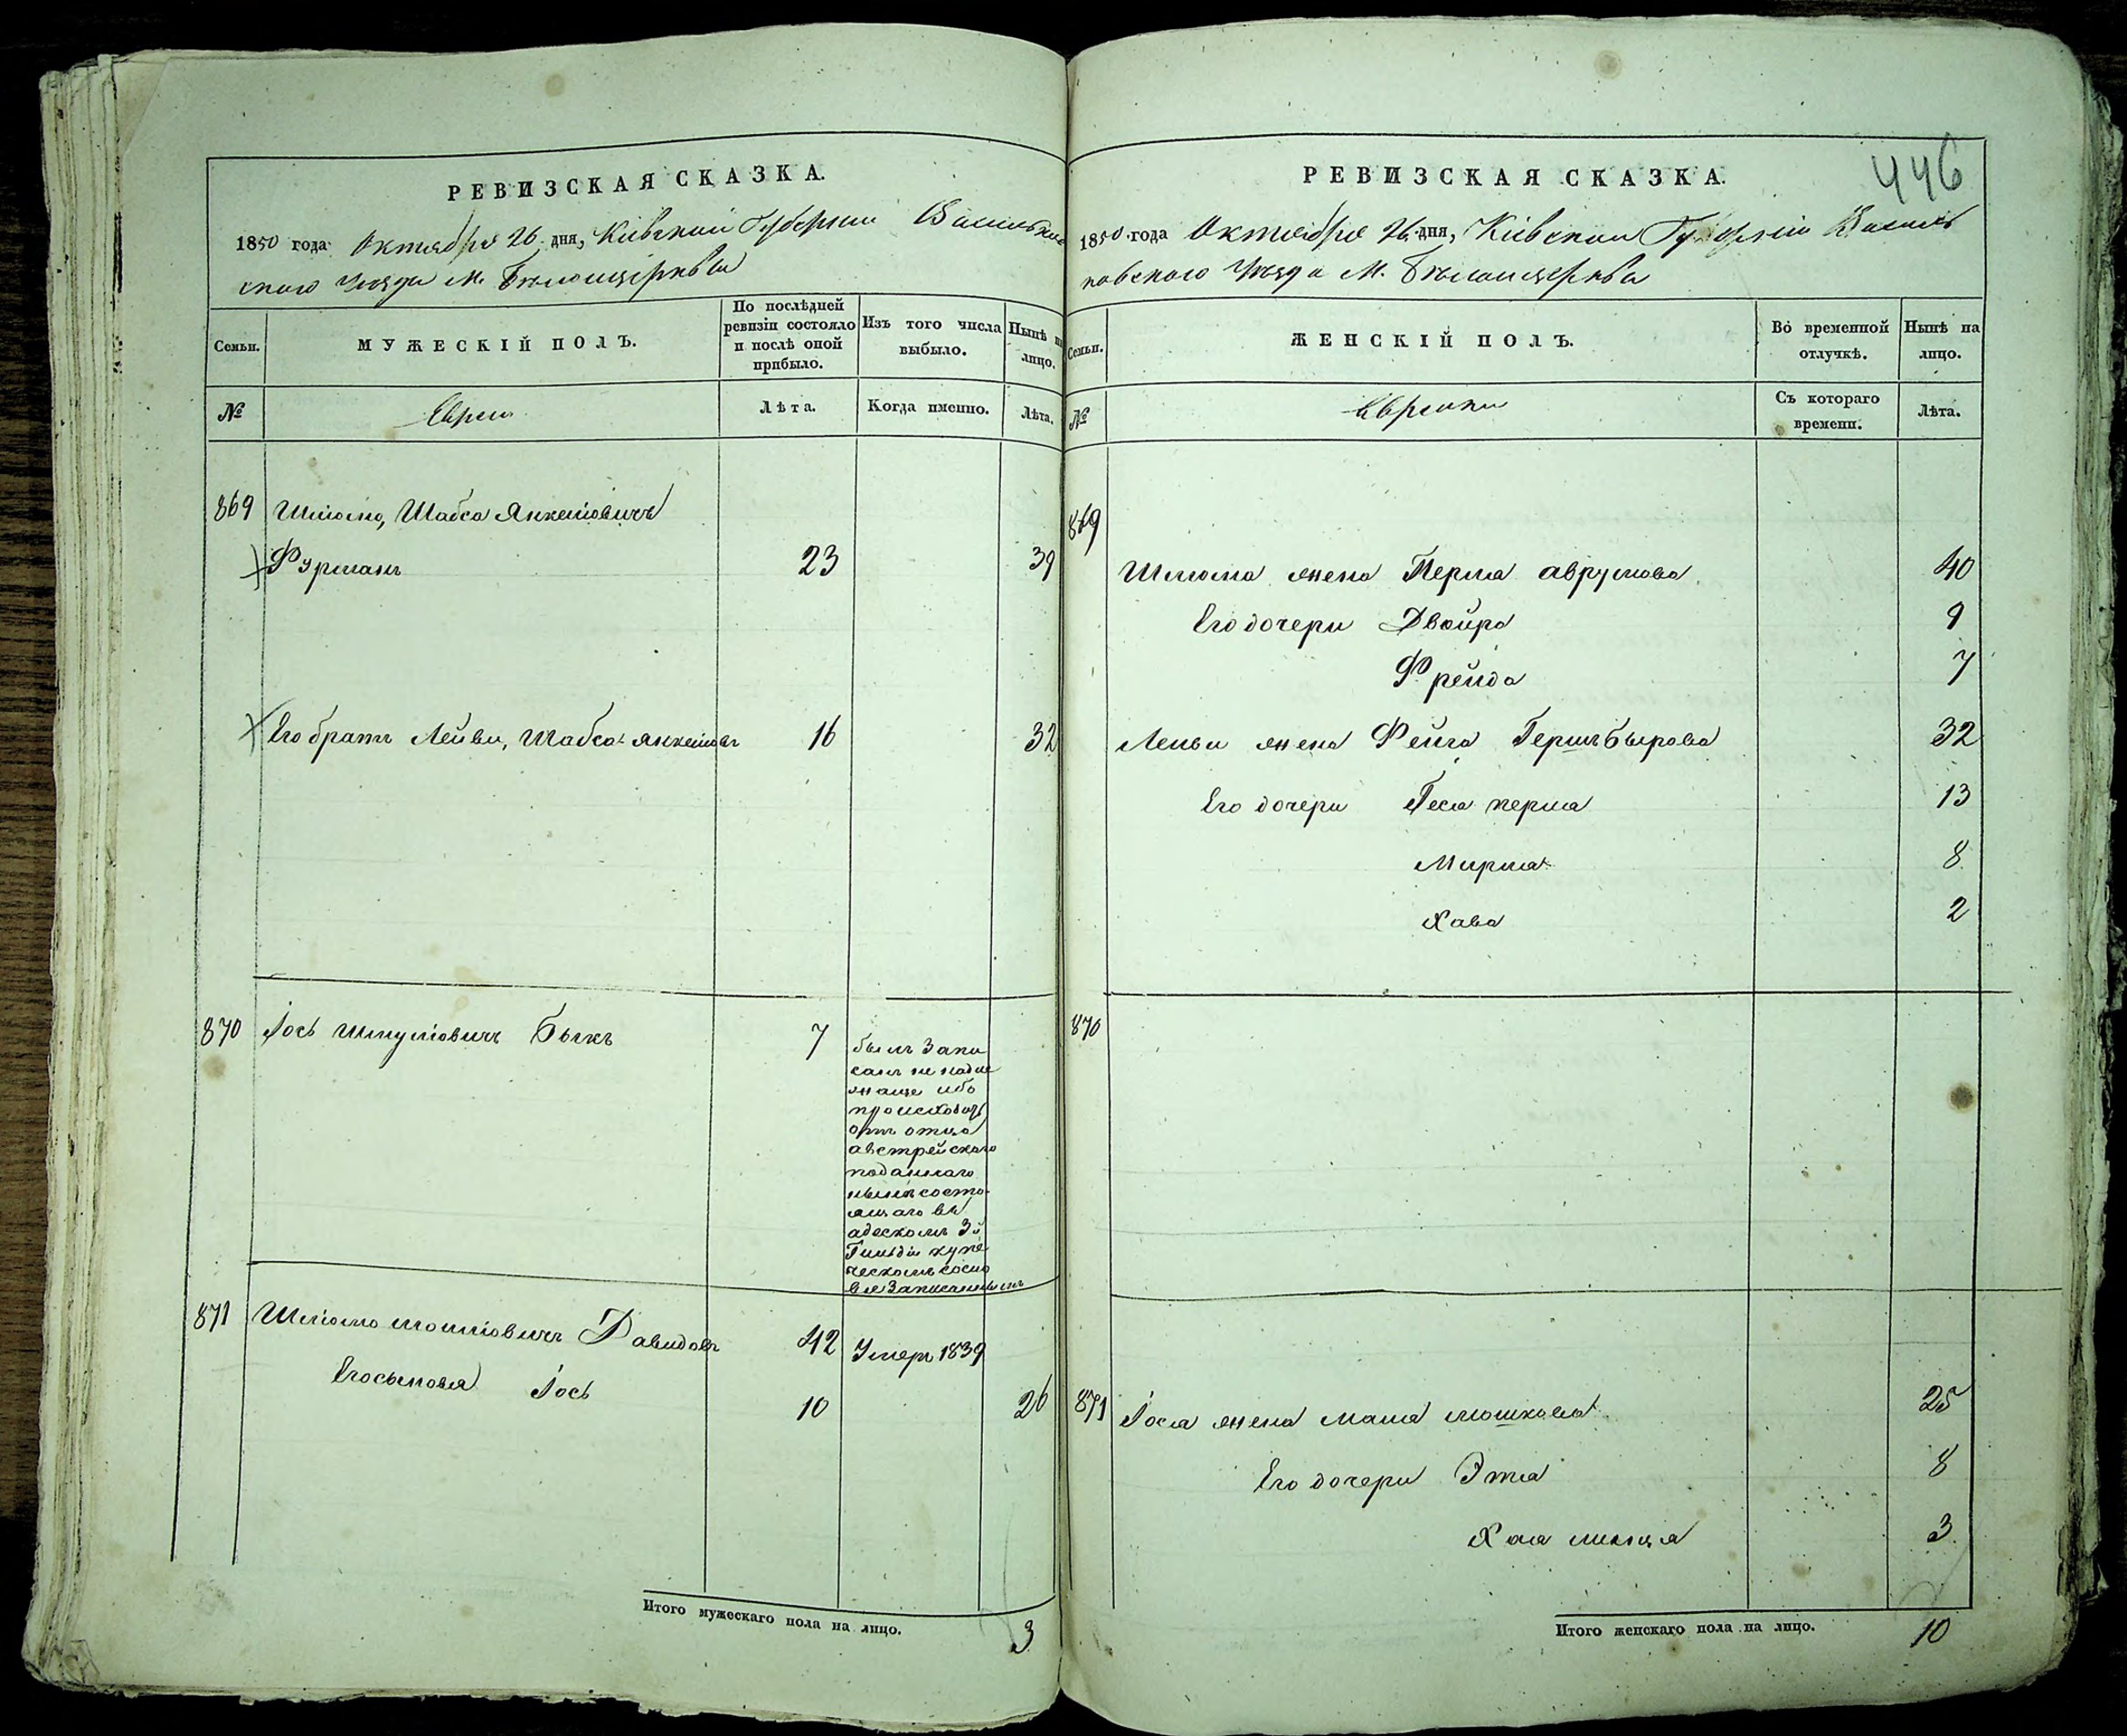 РЕВИЗСКАЯ СКАЗКА.
1850 года Октября 26 дня, Кіевской Губерніи Васильков
скаго уезда м. Белоицерквы
Семьи.
МУЖЕСКІЙ ПОЛЪ.
По послѣдней ревизіи состояло и послѣ оной прибыло.
Изъ того числа выбыло.
Нынѣ на лицо.
№
Евреи
Лѣта.
Когда именно.
Лѣта.
869 Шліома, Шабса Янкеліовичъ
Фурманъ 23 39
Его братъ Лейви, Шабса Янкеліовъ 16 32
870 Іось Шмуліовичъ Быкъ 7
былъ запи
санъ не надле
жаще ибо
происходитъ
отъ отца
австрейскаго
поданнаго
ныне состо
ящаго въ
адескомъ 3й
Гильдіи купе
ческомъ сосло
віе записаннымъ
871 Шліома Давидовъ 42 Умеръ 1839
Его сыновья Іось 10 26
Итого мужескаго пола на лицо. 3
446
РЕВИЗСКАЯ СКАЗКА.
1850 года Октября 26 дня, Кіевской Губерніи Василь
ковскаго уезда м. Белоицерквы
Семьи.
ЖЕНСКІЙ ПОЛЪ.
Во временной отлучкѣ.
Нынѣ на лицо.
№
Еврейки
Съ котораго времени.
Лѣта.
869
Шліома жена Перла Аврумова 40
Его дочери Двойра 9
Фрейда 7
Лейви жена Фейга Гершбырова 32
Его дочери перла 13
Мирля 8
Хава 2
870
871 Іося жена Маля Мошкова 25
Его дочери Этя 8
Хая 3
Итого женскаго пола на лицо. 10